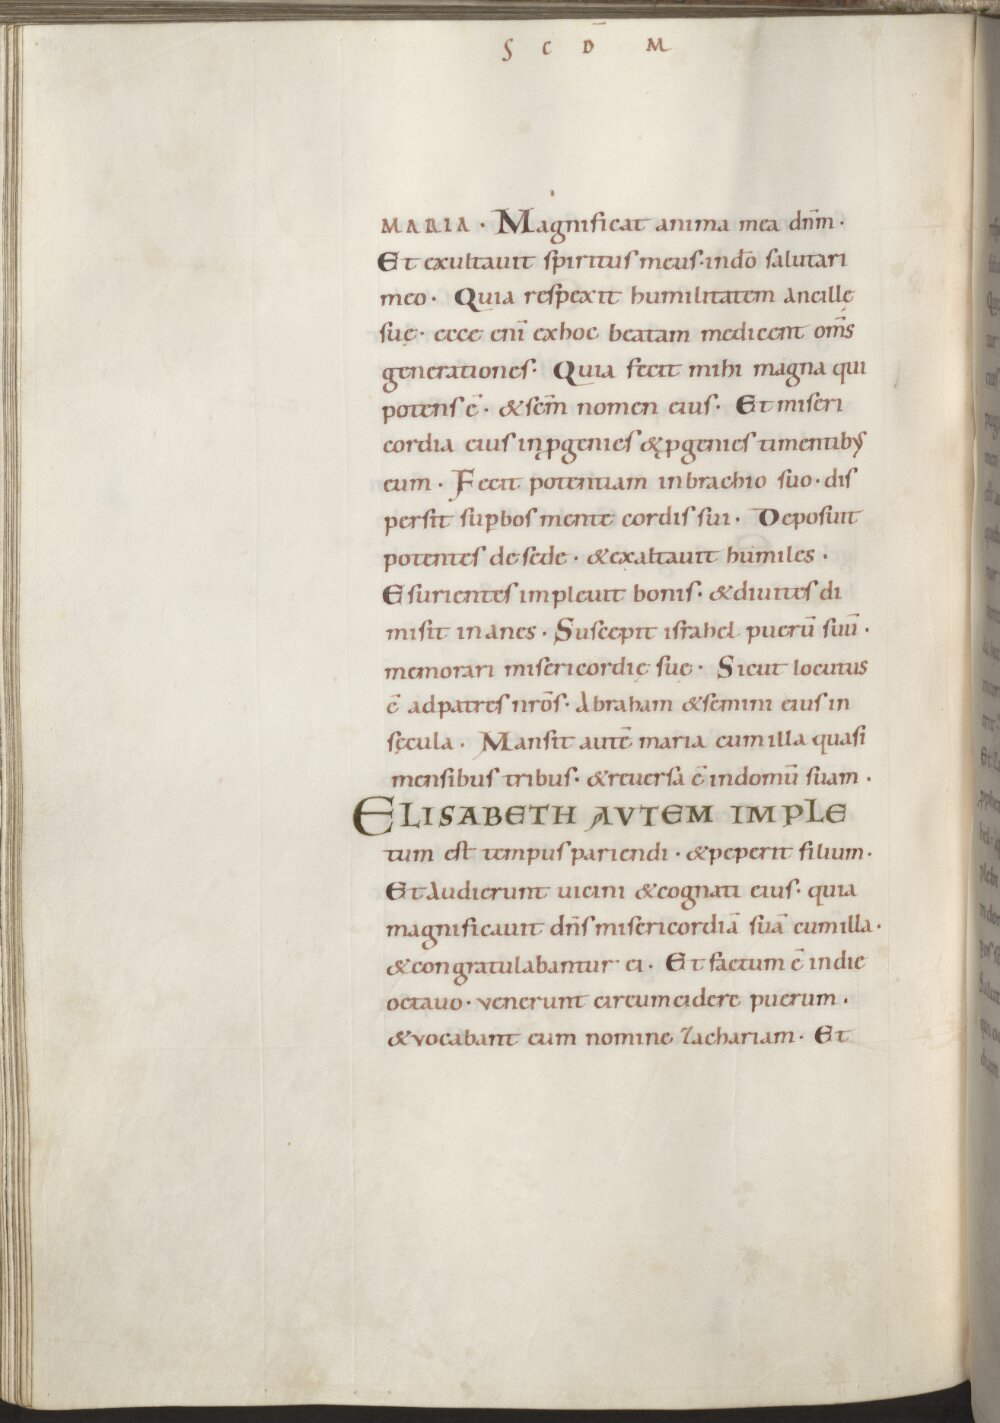 S C D̄ M
MARIA · Magnificat anima mea dñm ·
Et exultauit spiritus meus · indō salutari
meo · Quia respexit humilitatem ancillę
suę · ecce enī exhoc beatam medicent om̄s
generationes · Quia fecit mihi magna qui
potens ē · &scm̄ nomen eius · Et miseri
cordia eius inꝓgenies &ꝓgenies timentibꝰ
eum · Fecit potentiam inbrachio suo · dis
persit suꝑbos mente cordis sui · Deposuit
potentes desede · &exaltauit humiles ·
Esurientes impleuit bonis · &diuites di
misit inanes · Suscepit isr̄ahel puerū suū ·
memorari misericordię suę · Sicut locutus
ē adpatres nrōs · Abraham &semini eius in
sęcula · Mansit autē maria cumilla quasi
mensibus tribus · &reuersa ē indomū suam ·
ELISABETH AVTEM IMPLE
tum est tempus pariendi · &peperit filium ·
Et audierunt uicini &cognati eius · quia
magnificauit dñs misericordiā suā cumilla ·
&congratulabantur ei · Et factum ē indie
octauo · venerunt circumcidere puerum ·
&vocabant eum nomine Zachariam · Et